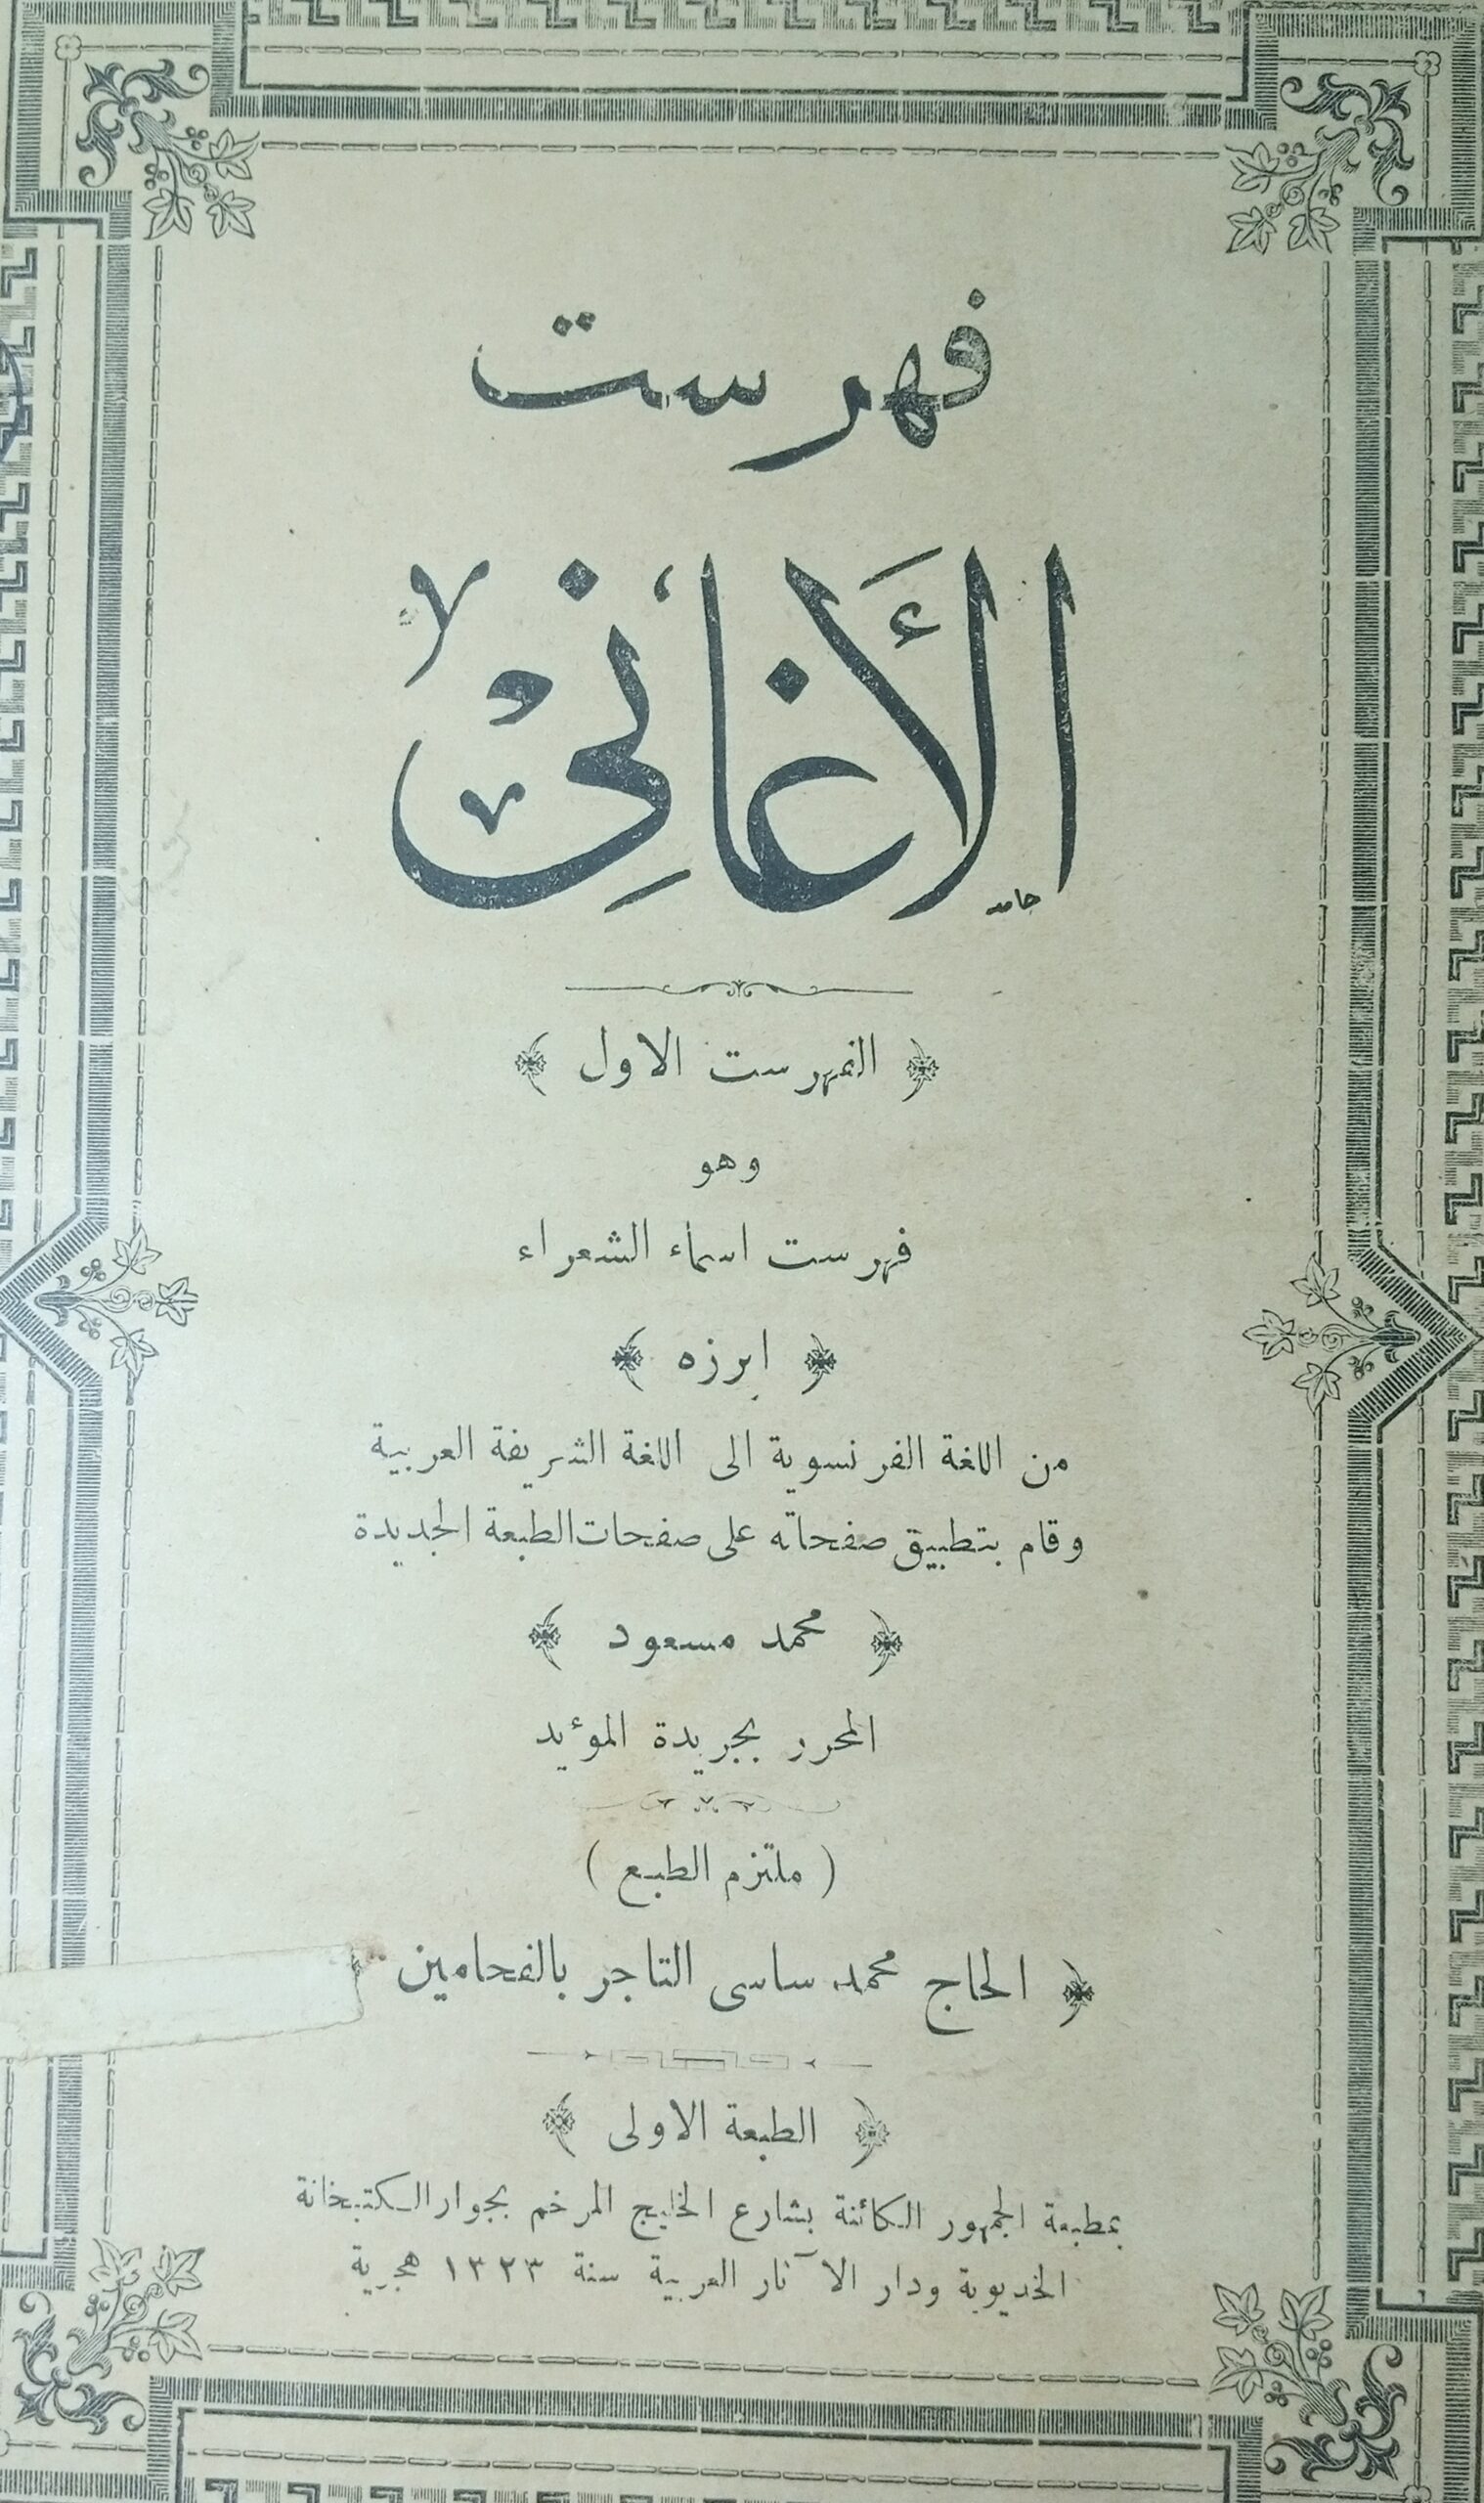 فهرست
الأَغانِيْ
حامد
الفهرست الاول
وهو
فهرست اسماء الشعراء
ابرزه
من اللغة الفرنسوية الى اللغة الشريفة العربية
وقام بتطبيق صفحاته على صفحات الطبعة الجديدة
محمد مسعود
المحرر بجريدة المؤيد
( ملتزم الطبع )
الحاج محمد ساسى التاجر بالفحامين
الطبعة الاولى
بمطبعة الجمهور الكائنة بشارع الخليج المرخم بجوار الكتبخانة
الخديوية ودار الآثار العربية سنة ١٣٢٣ هجرية